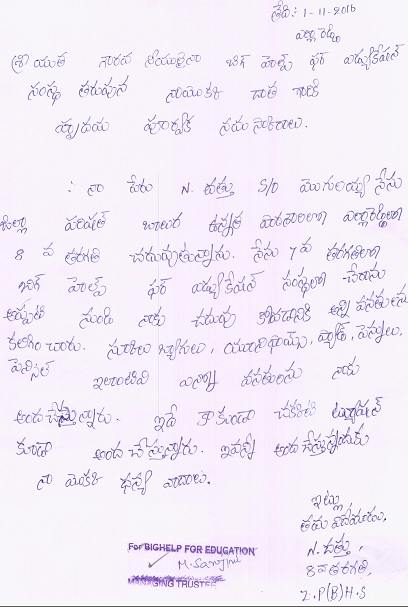 తేది: 1-11-2016
ఎల్లారెడ్డి
శ్రీ యుత గౌరవ నీయులైన బిగ్ హెల్ప్ ఫర్ ఎడ్యుకేషన్
సంస్థ తరుపున నాయొకళి దాత గారికి
హృదయ పూర్వక నమస్కారాలు.
: నా పేరు N. దత్తు S/O మొగులయ్య నేను
జిల్లా పరిషత్ బాలుర ఉన్నత పాఠశాలలో ఎల్లారెడ్డిలో
8 వ తరగతి చదువుతున్నాను. నేను 7వ తరగతిలో
బిగ్ హెల్ప్ ఫర్ ఎడ్యుకేషన్ సంస్థలో చేరాను
అప్పటి నుండి నాకు చదువు కోవడానికి అన్ని వసతులను
కలిగించారు. స్కూలు బ్యాగులు, యూనిఫామ్స్, ప్యాడ్, పెన్నులు,
పెన్సిల్ ఇలాంటివి ఎన్నో వసతులను నాకు
అందచేస్తున్నారు. ఇదే కాకుండా చక్కటి ట్యూషన్
కుడా అందచేస్తున్నారు. ఇవన్నీ అందచేస్తున్నందుకు
నా యొకళి ధన్య వాదాలు.
ఇట్లు
తమ విధేయుడు,
N. దత్తు,
8వ తరగతి,
Z.P(B)H.S
For BIGHELP FOR EDUCATION
M. Sarojini
MANAGING TRUSTEE